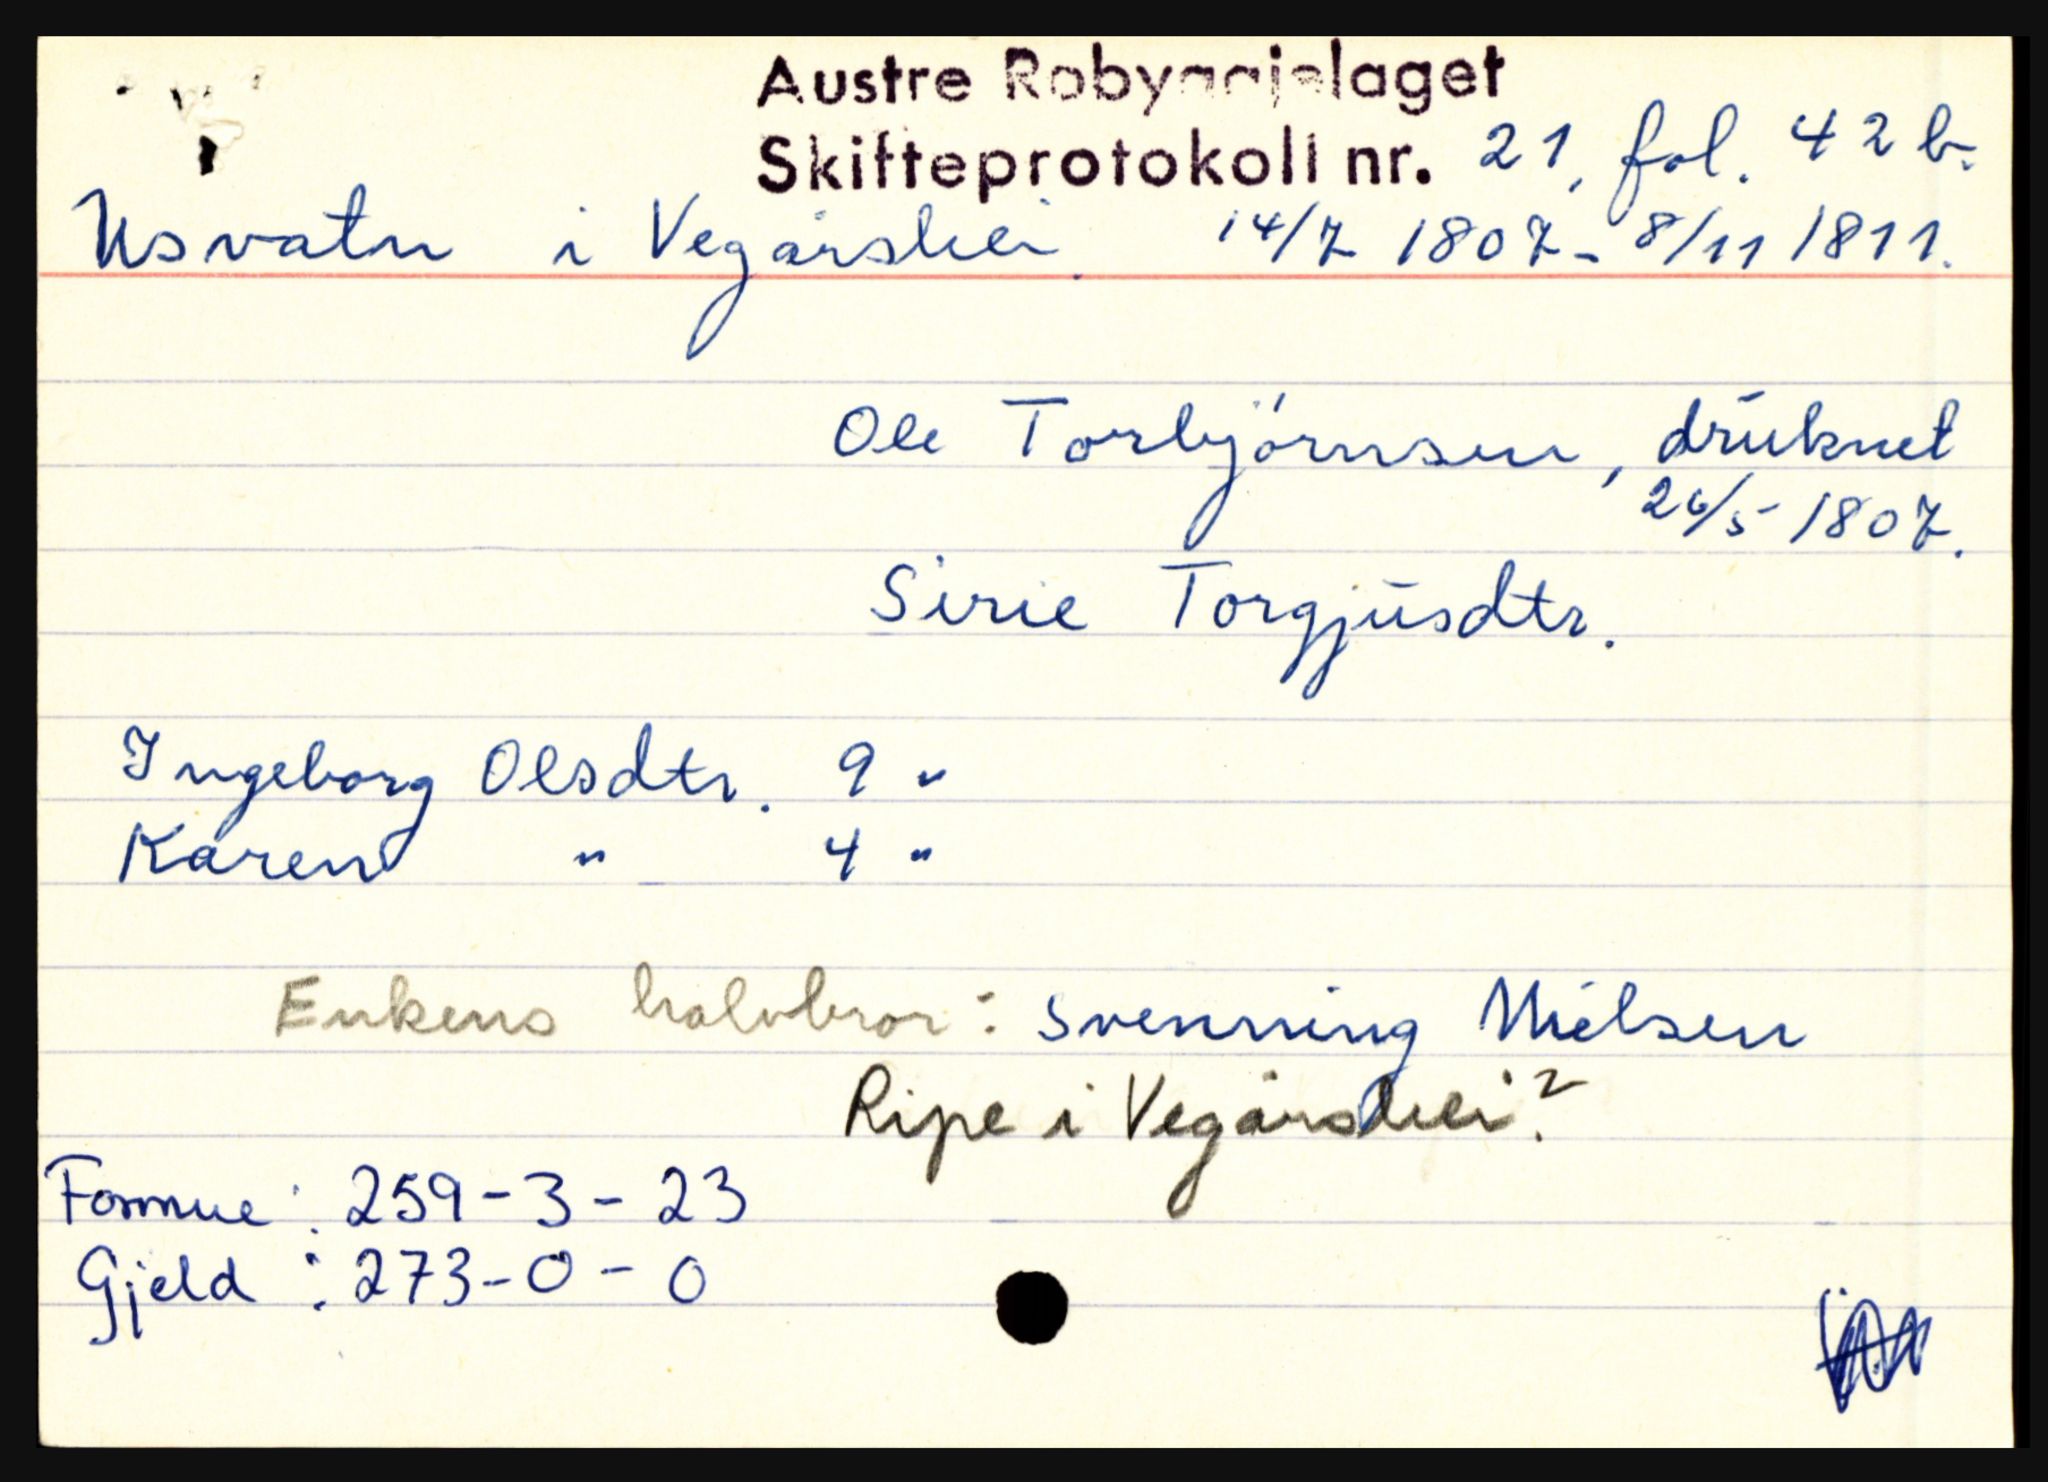 Austre Robyggjelaget
Skifteprotokoll nr. 21, fol. 42 b.
Usvatn i Vegårshei. 14/7 1807 - 8/11 1811.
Ole Torbjørnsen, druknet
26/5 1807.
Sirie Torgjusdtr.
Ingeborg Olsdtr. 9 "
Karen " 4 "
Enkens halvbror: Svenning Nielsen
Ripe i Vegårshei?
Formue: 259 - 3 - 23
Gjeld: 273 - 0 - 0